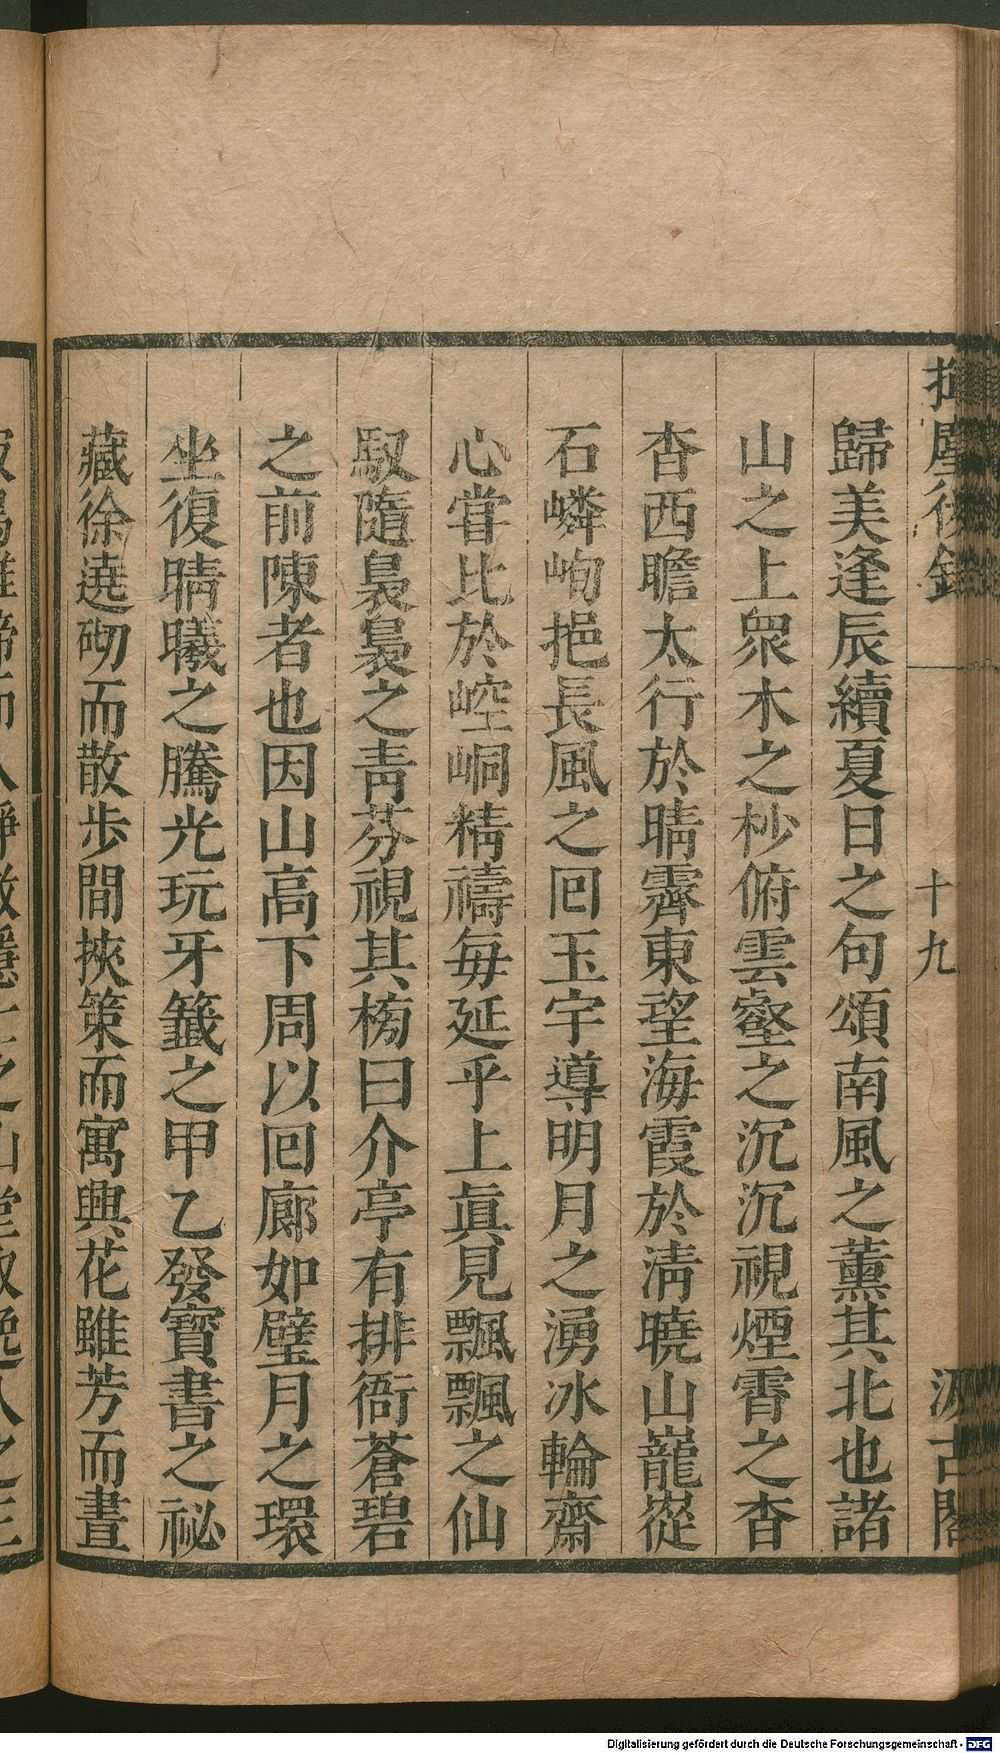 揮麈後錄
十九
汲古閣
歸美逢辰續夏日之句頌南風之薰其北也諸
山之上衆木之杪俯雲壑之沉沉視煙霄之杳
杳西瞻太行於晴霽東望海霞於清曉山巃嵸
石嶙峋挹長風之囘玉宇導明月之湧冰輪齋
心嘗比於崆峒精禱每延乎上眞見飄飄之仙
馭隨裊裊之靑芬視其榜曰介亭有排衙蒼碧
之前陳者也因山高下周以回廊如璧月之環
坐復晴曦之騰光玩牙籤之甲乙發寶書之祕
藏徐遶砌而散步間挾策而寓興花雖芳而晝
Digitalisierung gefördert durch die Deutsche Forschungsgemeinschaft - DFG